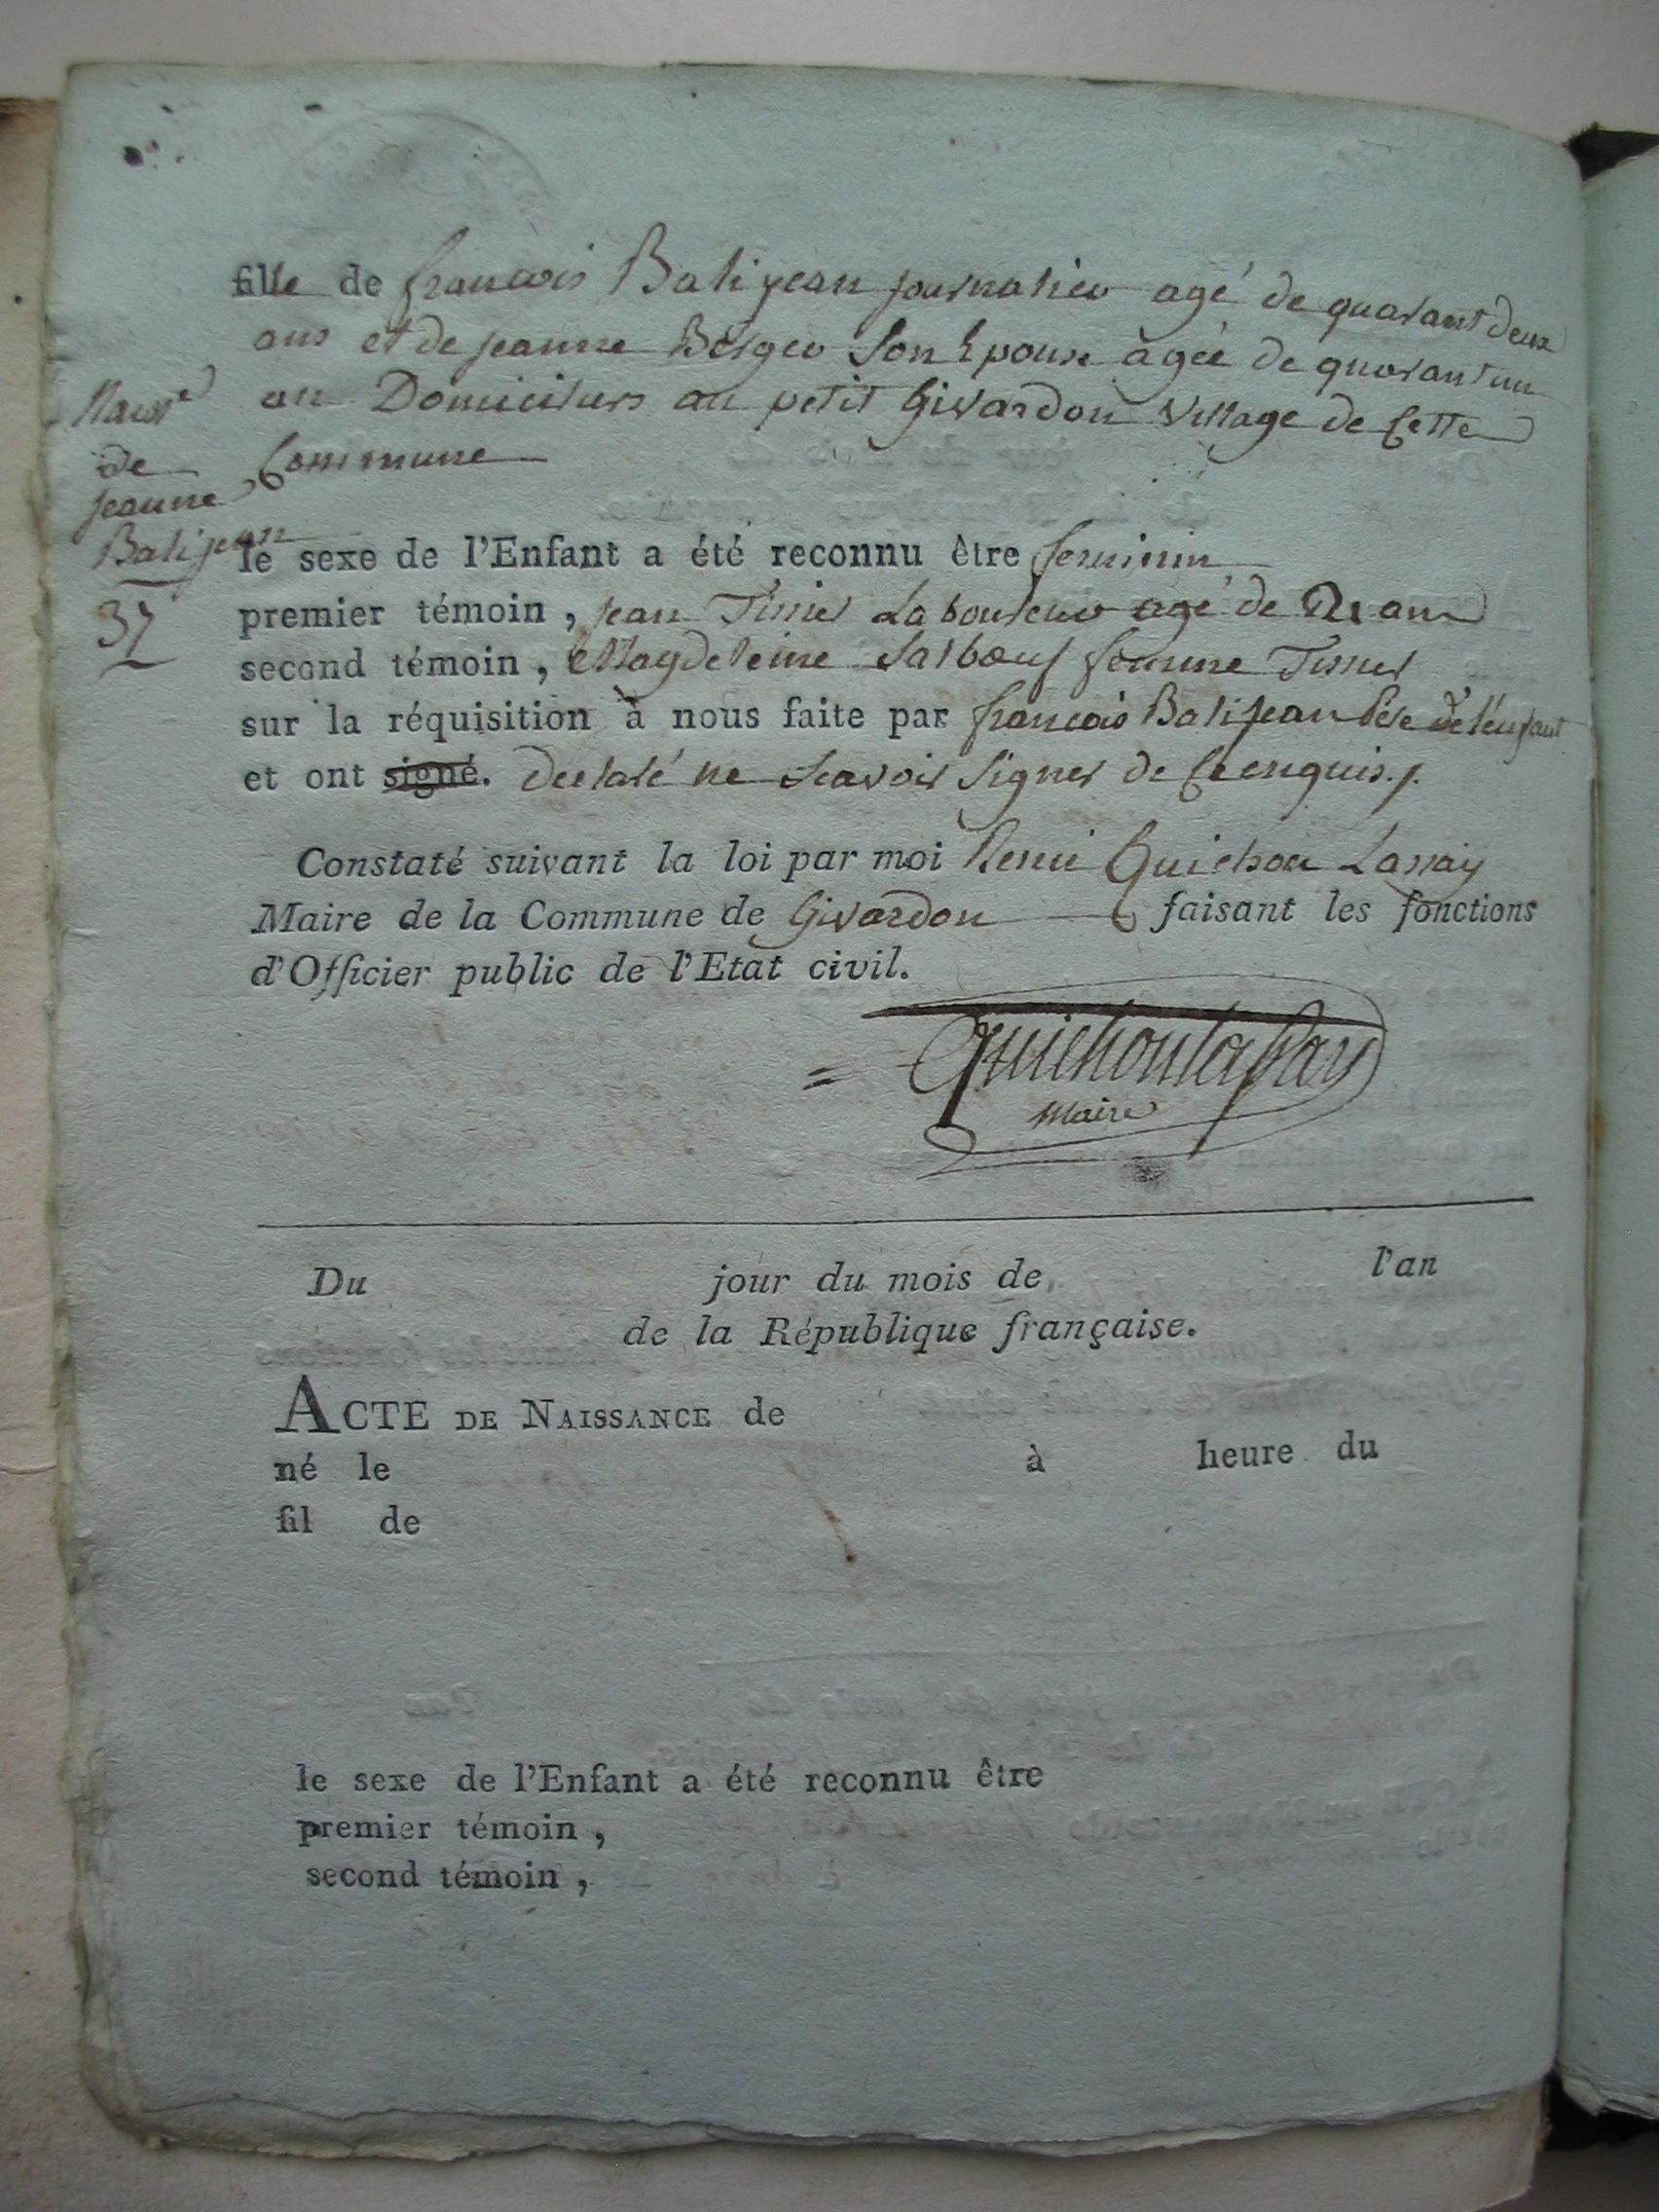 fille de francois Batijean journalier agé de quarant deux
ans et de jeanne Berger son Epouse agée de quarant un
an Domiciliers au petit Givardon village de cette
Commune
Naiss.ce
de
jeanne
Batijean
37
le sexe de l'Enfant a été reconnu être feminin
premier témoin, jean Tissier Laboureur agé de 21 ans
second témoin, Magdeleine Salboeuf femme Tissier
sur la réquisition à nous faite par francois Batijean Père de l'enfant
et ont signé. declaré ne scavoir signer de ce enquis./.
Constaté suivant la loi par moi Remi Guichon Lassay
Maire de la Commune de Givardon faisant les fonctions
d'Officier public de l'Etat civil.
= Guichon lassay
Maire
Du jour du mois de l'an
de la République française.
ACTE DE NAISSANCE de
né le à heure du
fil de
le sexe de l'Enfant a été reconnu être
premier témoin,
second témoin,